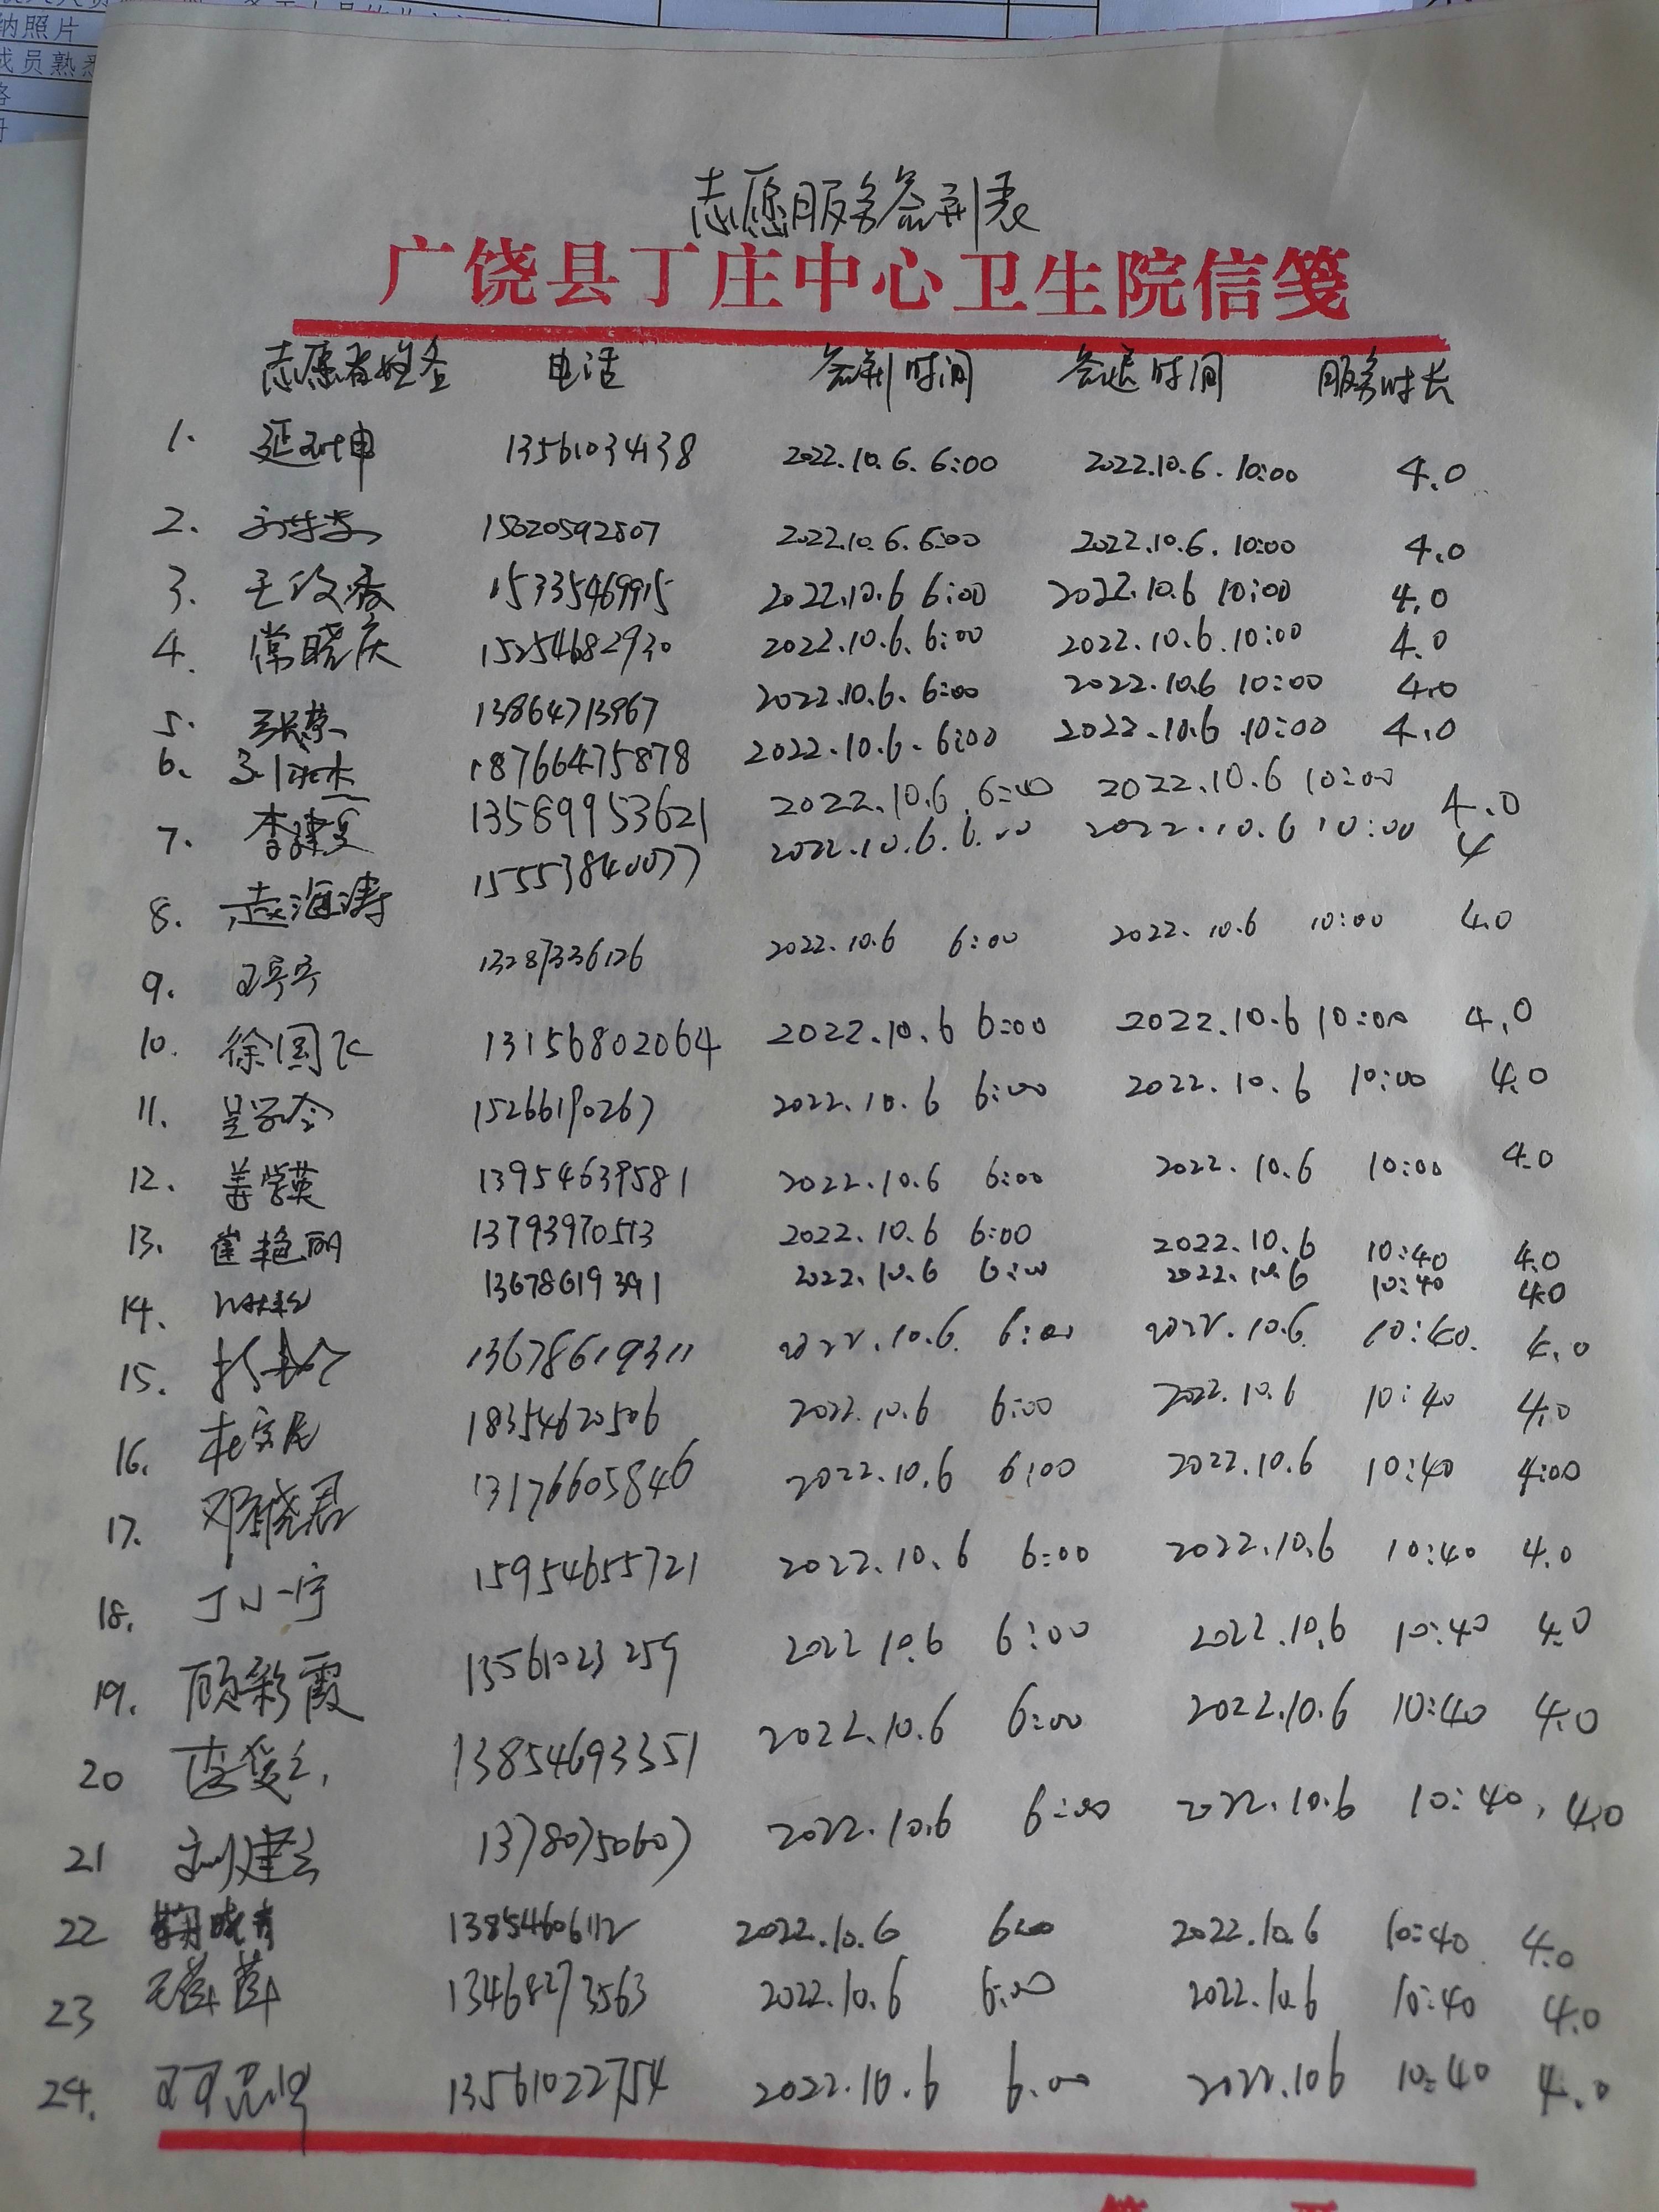 纳照片
成员熟悉
志愿服务签到表
广饶县丁庄中心卫生院信笺
志愿者姓名 电话 签到时间 签退时间 服务时长
1. 延对申 13561034138 2022.10.6. 6:00 2022.10.6. 10:00 4.0
2. 2022.10.6. 6:00 2022.10.6. 10:00 4.0
3. 15335469915 2022.10.6 6:00 2022.10.6 10:00 4.0
4. 常晓庆 15254682930 2022.10.6. 6:00 2022.10.6. 10:00 4.0
5. 13864713967 2022.10.6. 6:00 2022.10.6 10:00 4.0
6. 18766475878 2022.10.6. 6:00 2022.10.6 10:00 4.0
7. 李建军 13589953621 2022.10.6. 6:00 2022.10.6 10:00 4.0
8. 赵海涛 15553840077 2022.10.6. 6:00 2022.10.6 10:00 4
9. 13287336126 2022.10.6 6:00 2022.10.6 10:00 4.0
10. 徐国飞 13156802064 2022.10.6 6:00 2022.10.6 10:00 4.0
11. 15266190267 2022.10.6 6:00 2022.10.6 10:00 4.0
12. 盖学英 13954639581 2022.10.6 6:00 2022.10.6 10:00 4.0
13. 崔艳丽 13793970513 2022.10.6 6:00 2022.10.6 10:40 4.0
14. 13678619391 2022.10.6 6:00 2022.10.6 10:40 4.0
15. 13678619311 2022.10.6. 6:00 2022.10.6. 10:40. 4.0
16. 杜安民 18354620506 2022.10.6 6:00 2022.10.6 10:40 4.0
17. 邓晓君 13176605846 2022.10.6 6:00 2022.10.6 10:40 4:00
18. 丁小宁 15954655721 2022.10.6 6:00 2022.10.6 10:40 4.0
19. 顾彩霞 13561023259 2022 10.6 6:00 2022.10.6 10:40 4.0
20 13854693351 2022.10.6 6:00 2022.10.6 10:40 4.0
21 刘建云 13780750607 2022.10.6 6:00 2022.10.6 10:40, 4.0
22 13854606112 2022.10.6 6:00 2022.10.6 10:40 4.0
23 13468273563 2022.10.6 6:00 2022.10.6 10:40 4.0
24. 13561022754 2022.10.6 6:00 2022.106 10:40 4.0